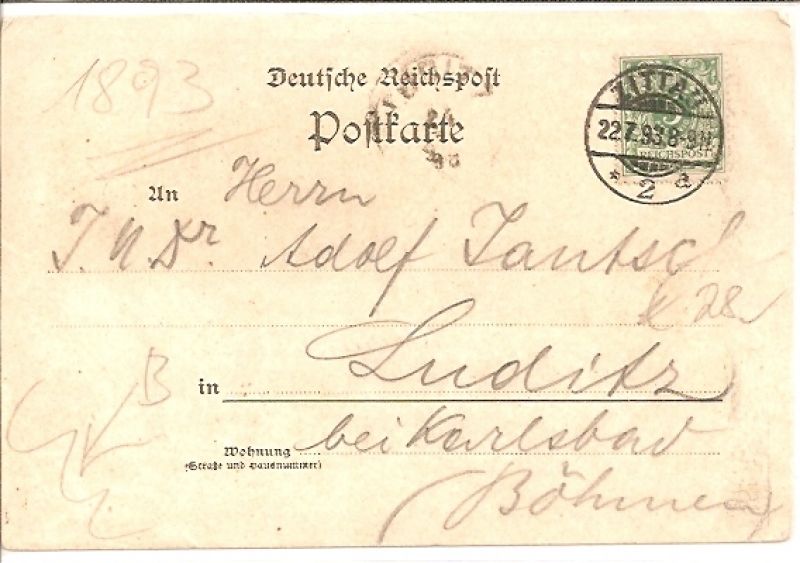 1893
Deutsche Reichspost
Postkarte
ZITTAU
22.7.93.8-9N
* 2 a
5
REICHSPOST
An Herrn
J. U. Dr. Adolf Jantsch
K 28
B
in Luditz
Wohnung
(Straße und Hausnummer)
bei Karlsbad
Böhmen